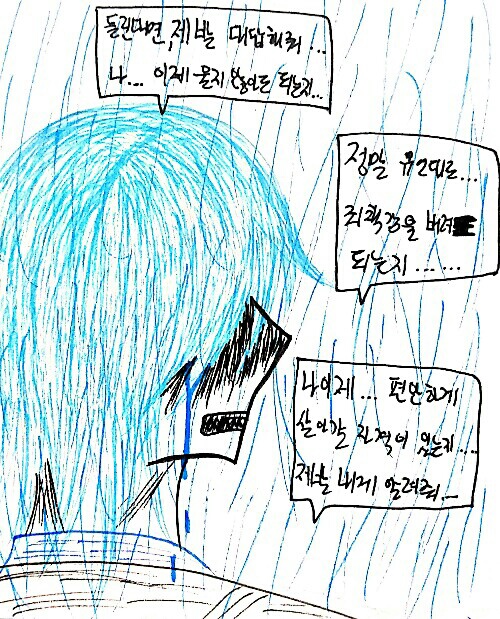 들린다면, 제발 대답해줘...
나... 이제 울지 않아도 되는지...
정말 유언대로...
죄책감을 버려도
되는지......
나 이제... 편안하게
살아갈 자격이 있는지....
제발 내게 알려줘...